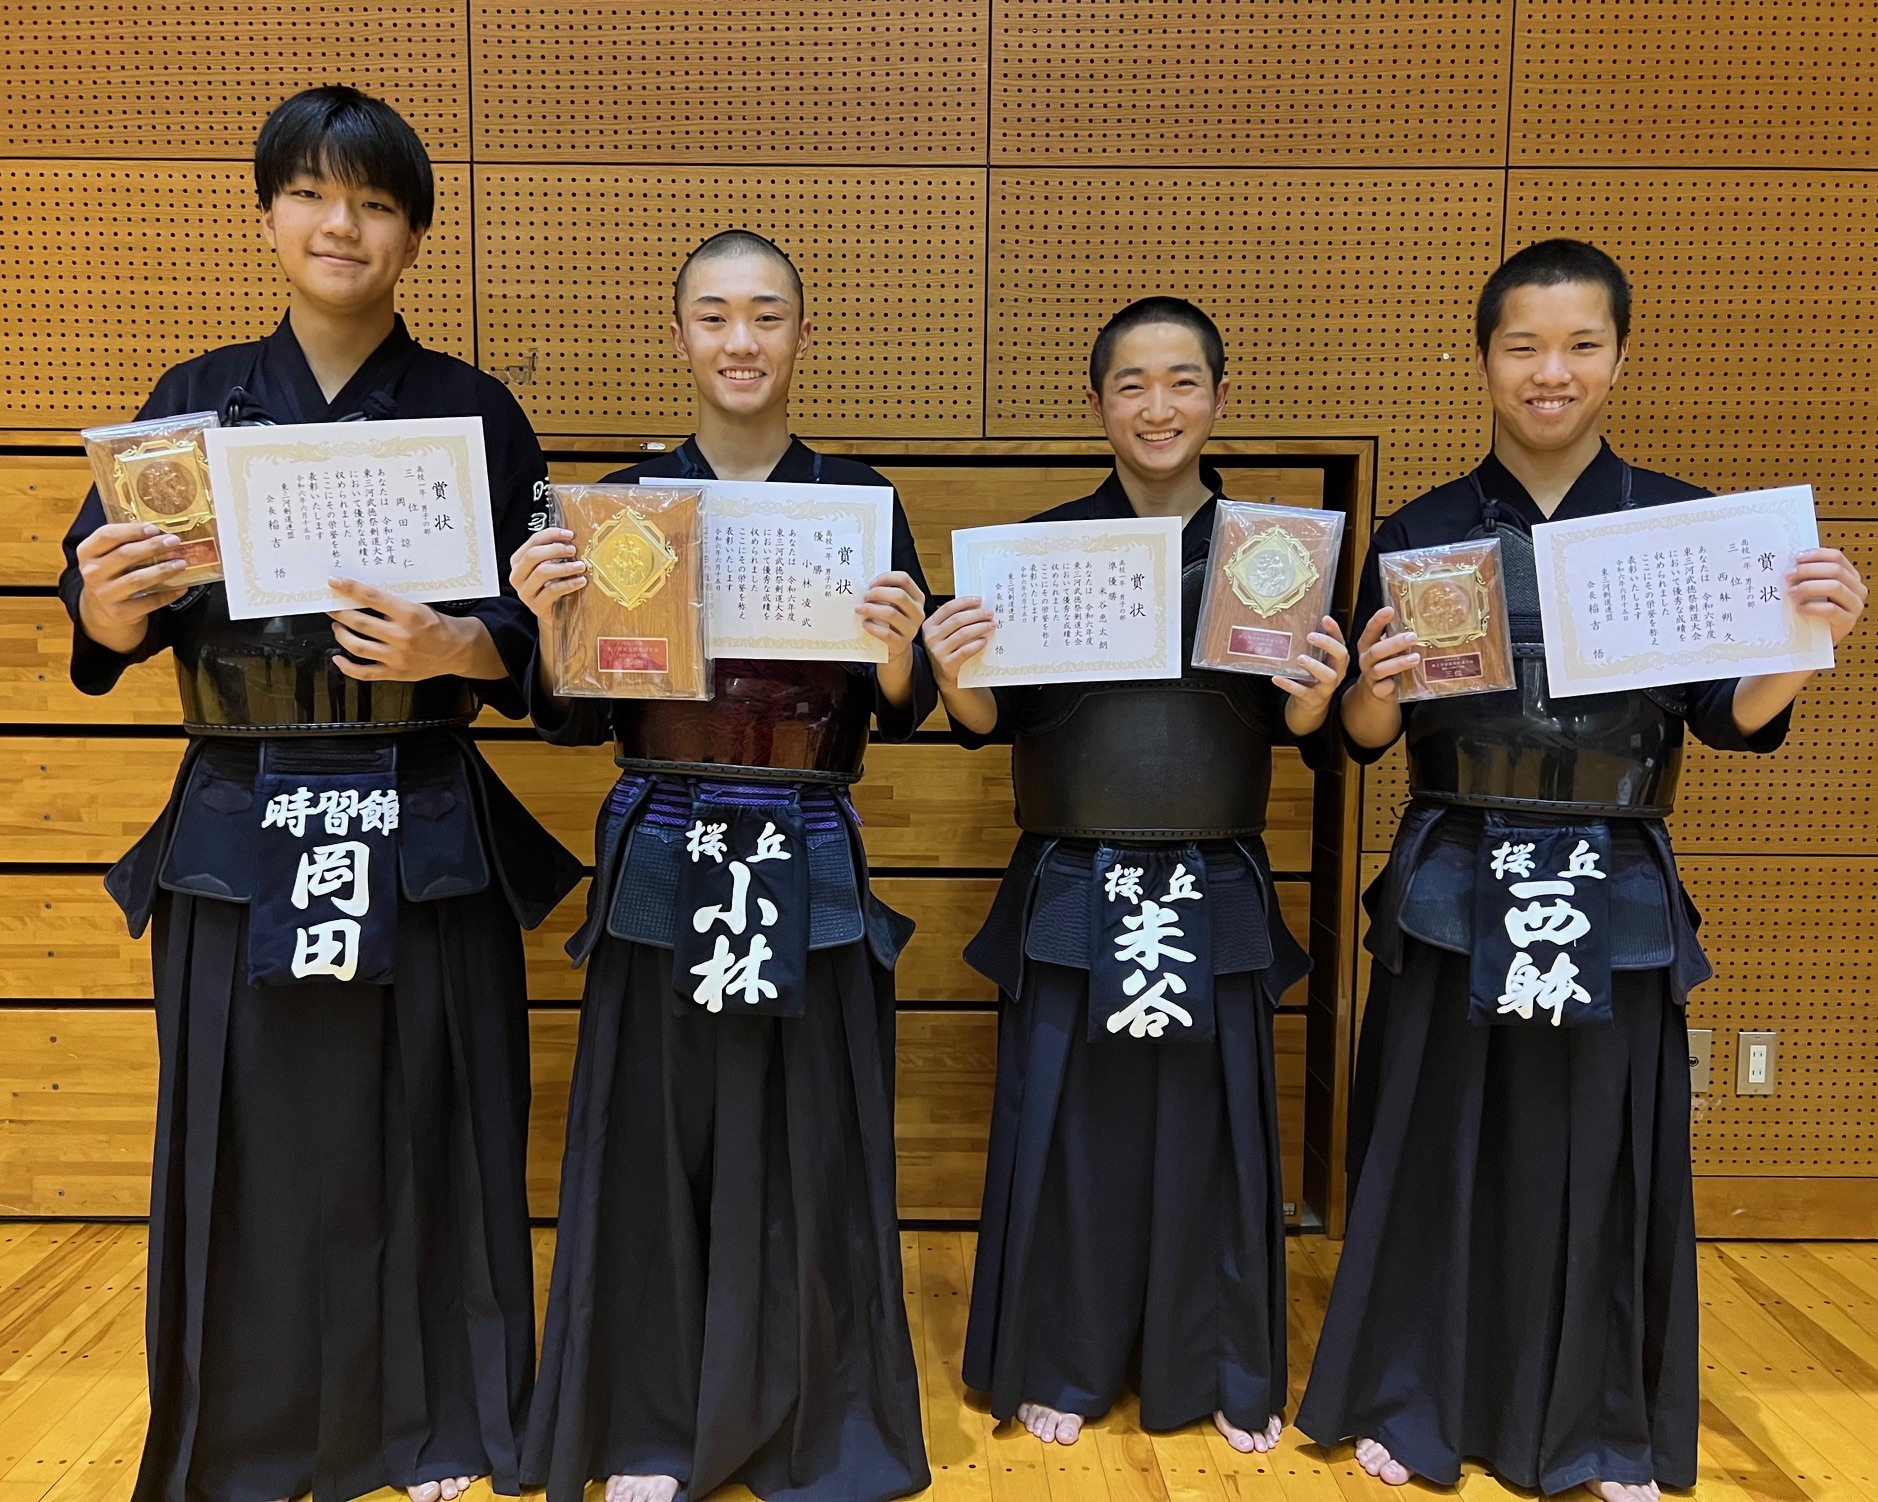 賞状
高校一年 男子の部
三位
岡田諒仁
あなたは 令和六年度
東三河武徳祭剣道大会
において優秀な成績を
収められました
ここにその栄誉を称え
表彰いたします
令和六年六月十五日
東三河剣道連盟
会長 稲吉 悟
時習館
岡田
賞状
高校一年 男子の部
優勝
小林凌武
あなたは 令和六年度
東三河武徳祭剣道大会
において優秀な成績を
収められました
ここにその栄誉を称え
表彰いたします
令和六年六月十五日
桜丘
小林
賞状
高校一年 男子の部
準優勝
米谷恵太朗
あなたは 令和六年度
東三河武徳祭剣道大会
において優秀な成績を
収められました
ここにその栄誉を称え
表彰いたします
令和六年六月十五日
東三河剣道連盟
会長 稲吉 悟
桜丘
米谷
三位
賞状
高校一年 男子の部
三位
西躰朔久
あなたは 令和六年度
東三河武徳祭剣道大会
において優秀な成績を
収められました
ここにその栄誉を称え
表彰いたします
令和六年六月十五日
東三河剣道連盟
会長 稲吉 悟
桜丘
西躰